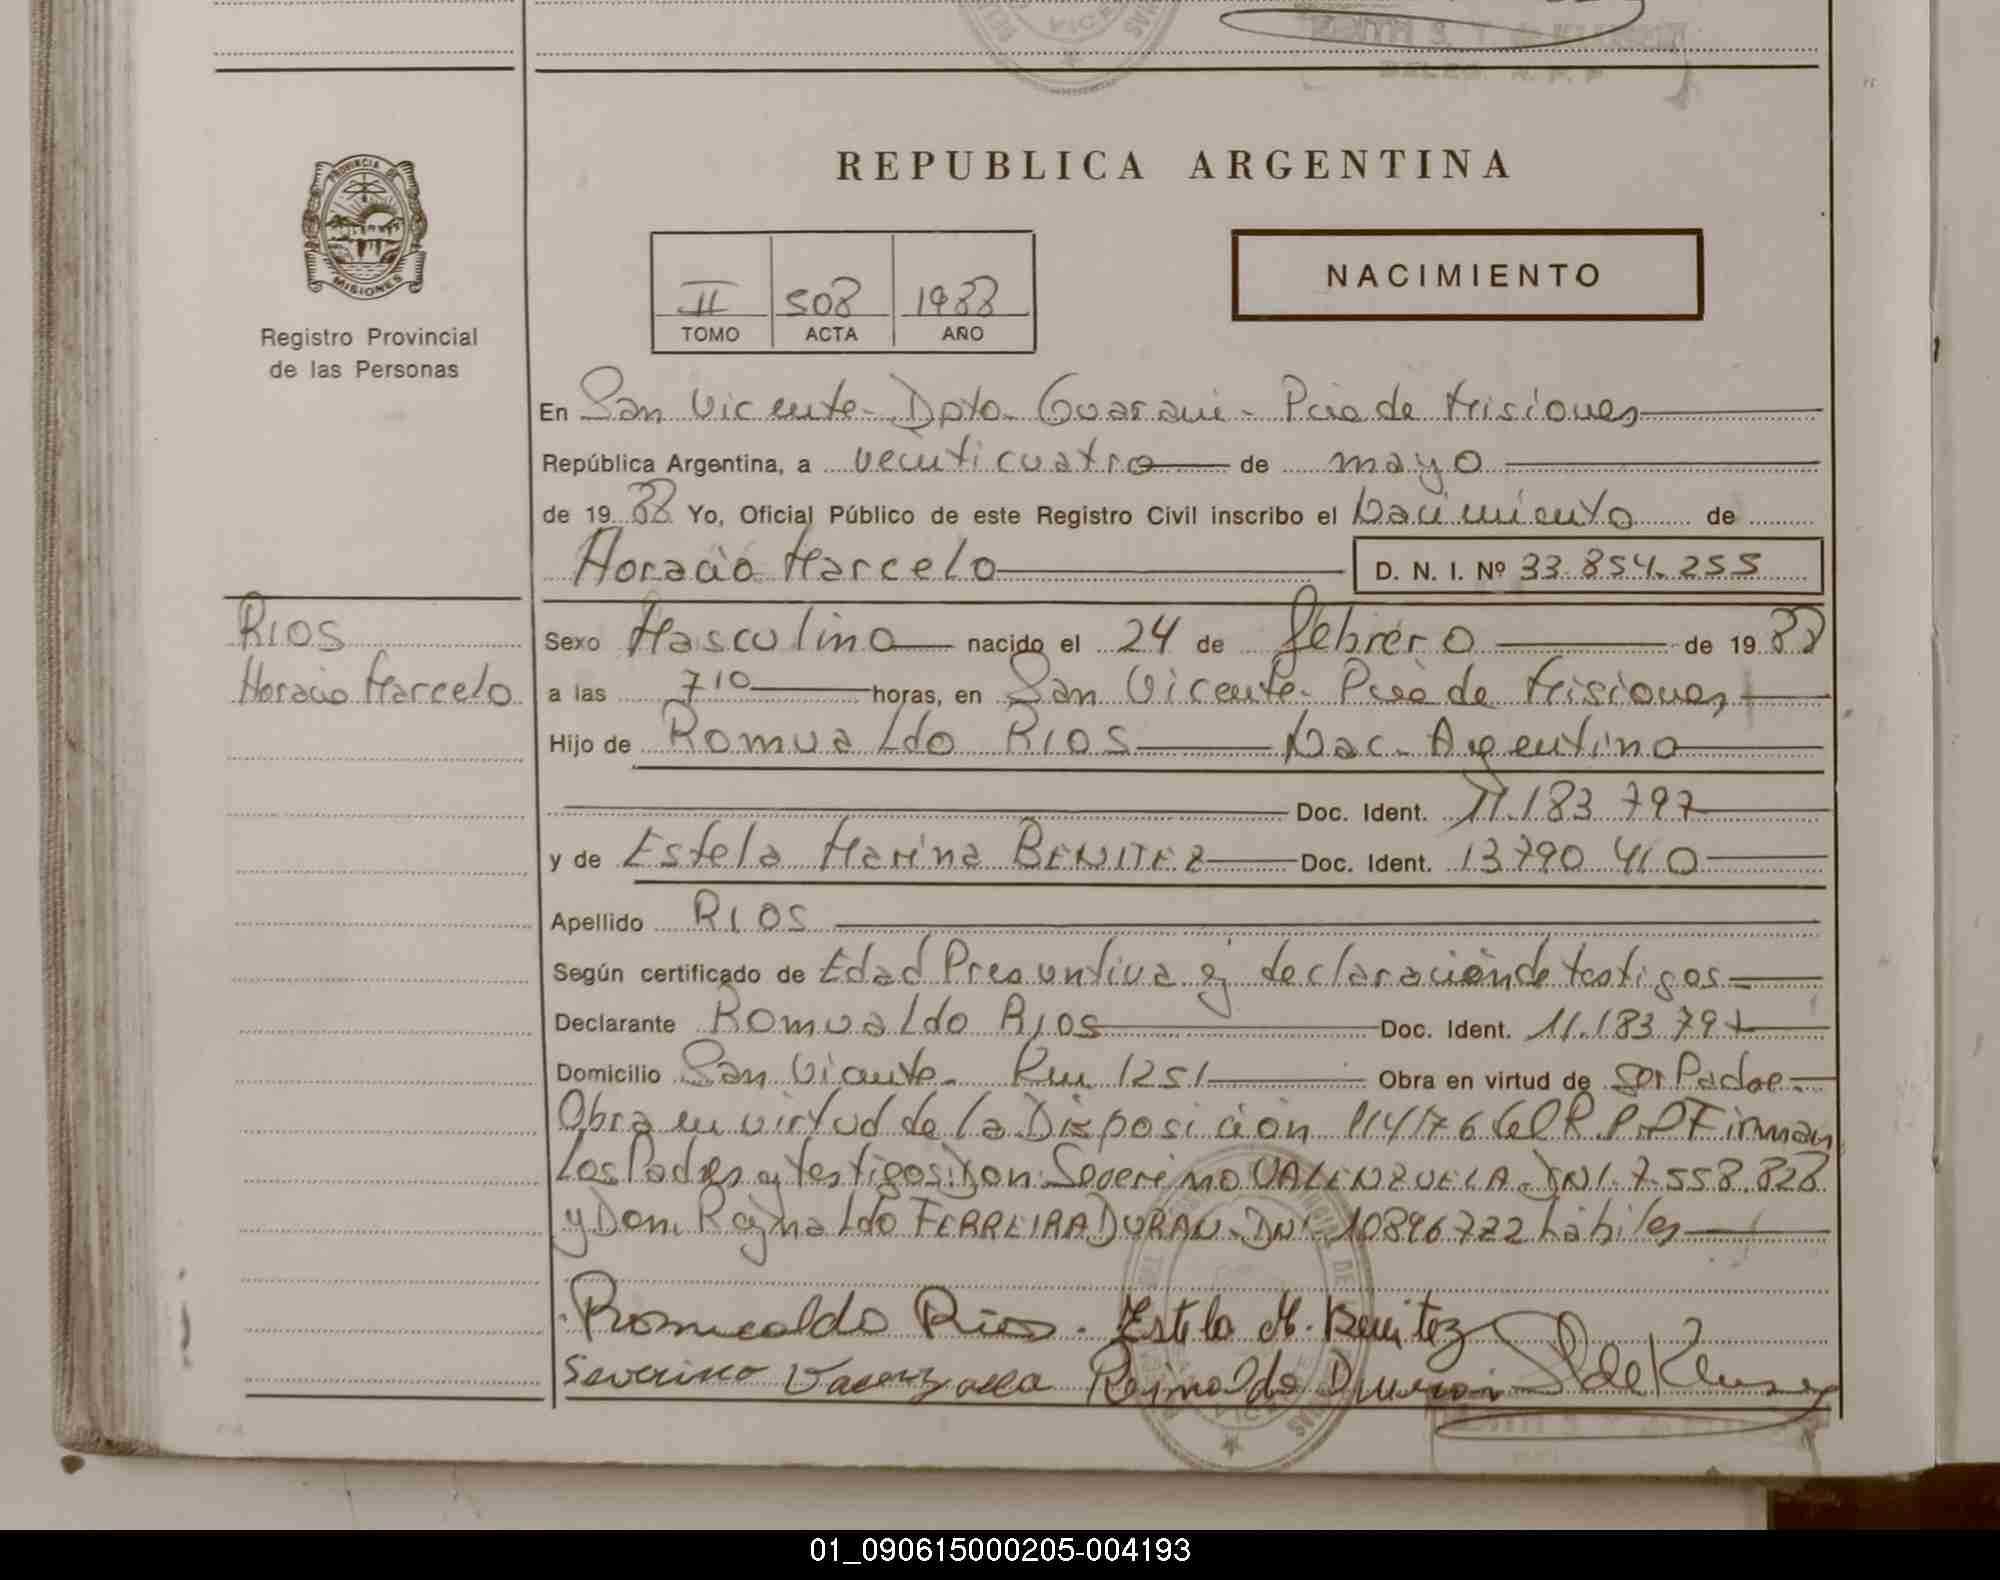 REPUBLICA ARGENTINA
PROVINCIA DE
MISIONES
Registro Provincial
de las Personas
II 508 1988
TOMO ACTA AÑO
NACIMIENTO
En San Vicente - Dpto - Guarani - Pcia de Misiones
República Argentina, a veinticuatro de mayo
de 1988 Yo, Oficial Público de este Registro Civil inscribo el Nacimiento de
Horacio Marcelo D. N. I. Nº 33.854.255
RIOS
Horacio Marcelo
Sexo Masculino nacido el 24 de febrero de 1988
a las 710 horas, en San Vicente - Pcia de Misiones
Hijo de Romualdo RIOS Nac - Argentino
Doc. Ident. 11.183.797
y de Estela Marina BENITEZ Doc. Ident. 13.790.410
Apellido RIOS
Según certificado de Edad Presuntiva y declaración de testigos
Declarante Romualdo RIOS Doc. Ident. 11.183.797
Domicilio San Vicente - Km 1251 Obra en virtud de ser Padre -
Obra en virtud de la Disposición 114/76 del R.P.P Firman
los Padres y testigos: Don Severino VALENZUELA - DNI. 7.558.828
y Don Reynaldo FERREIRA DURAN - DNI 10896722 hábiles
Romualdo Rios. Estela M. Benitez
Severino Valenzuela Reimaldo Duran
01_090615000205-004193